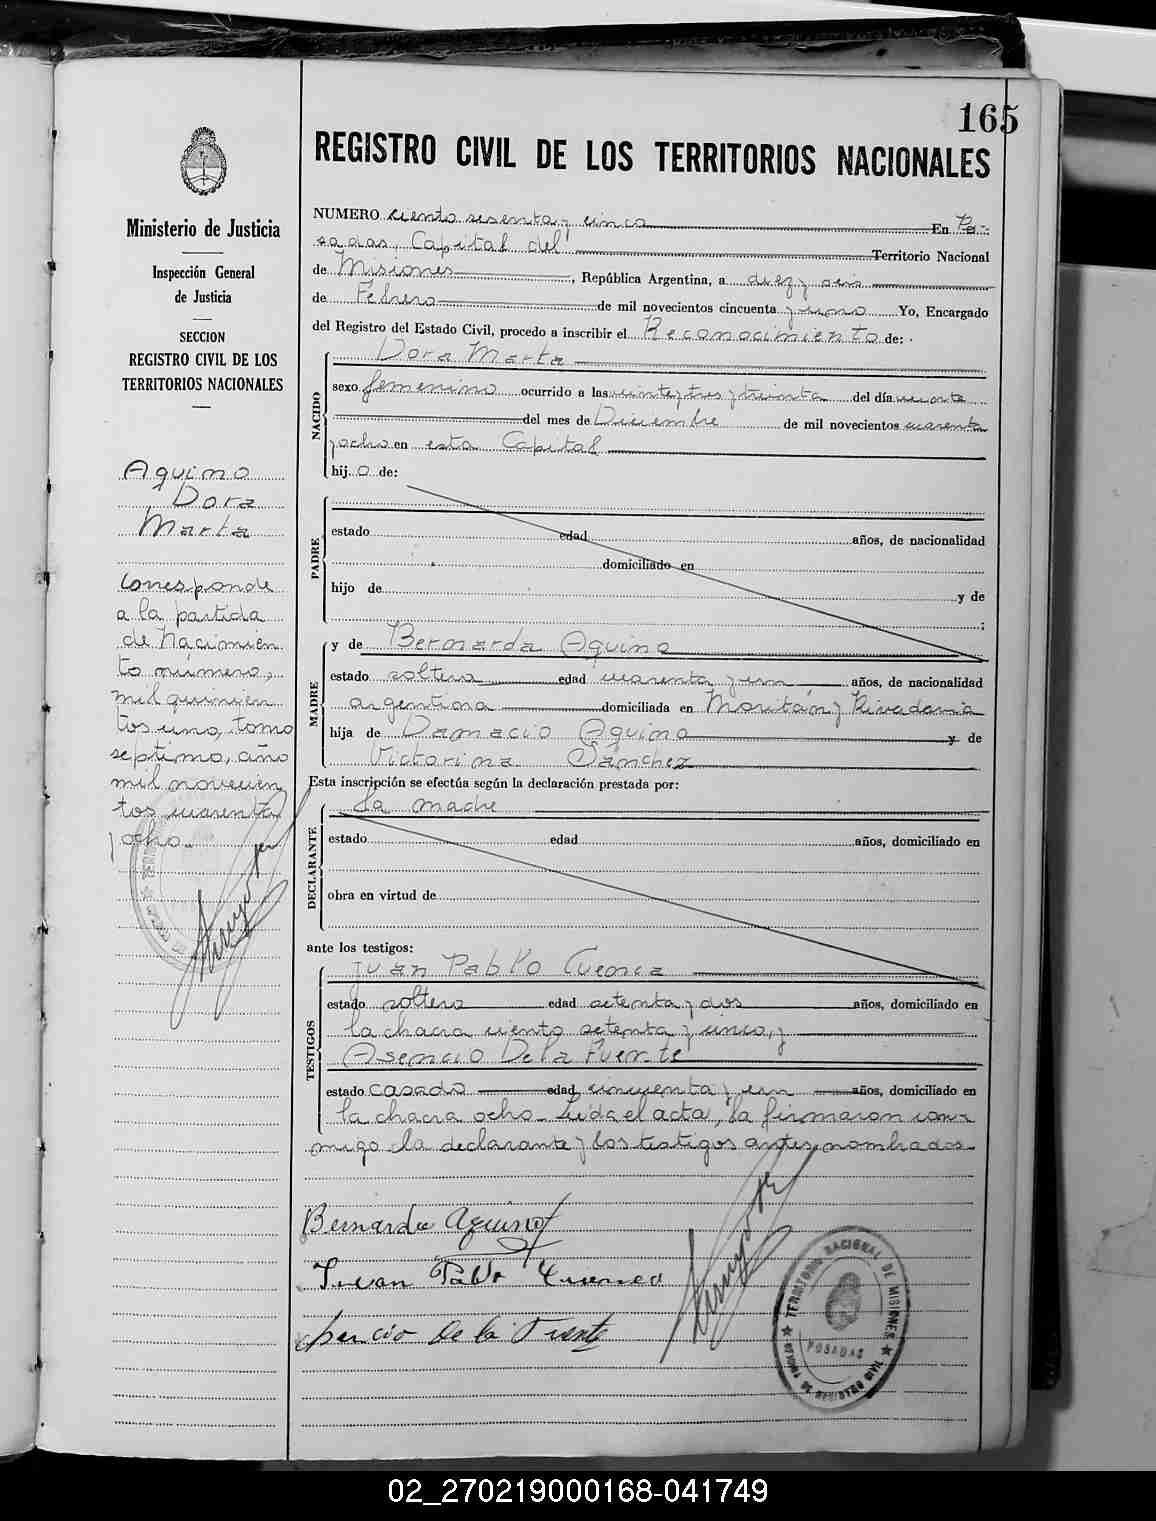 165
REGISTRO CIVIL DE LOS TERRITORIOS NACIONALES
Ministerio de Justicia
Inspección General
de Justicia
SECCION
REGISTRO CIVIL DE LOS
TERRITORIOS NACIONALES
Aquino
Dora
Marta
Corresponde
a la partida
de Nacimien
to número,
mil quinien
tos uno, tomo
septimo, año
mil novecien
tos cuarenta
y ocho.
NUMERO ciento sesenta y cinco En Po-
sadas, Capital del Territorio Nacional
de Misiones, República Argentina, a diez y seis
de Febrero de mil novecientos cincuenta y uno Yo, Encargado
del Registro del Estado Civil, procedo a inscribir el Reconocimiento de:
NACIDO
Dora Marta
sexo femenino ocurrido a las veinte y tres y treinta del día veinte
del mes de Diciembre de mil novecientos cuarenta
y ocho en esta Capital
hij o de:
PADRE
estado edad años, de nacionalidad
domiciliado en
hijo de y de
;
MADRE
y de Bernarda Aquino
estado soltera edad cuarenta y un años, de nacionalidad
argentina domiciliada en Moritán y Rivadavia
hija de Damacio Aquino y de
Victorina Sánchez
Esta inscripción se efectúa según la declaración prestada por:
DECLARANTE
la madre
estado edad años, domiciliado en
obra en virtud de
ante los testigos:
TESTIGOS
Juan Pablo Cuenca
estado soltero edad setenta y dos años, domiciliado en
la chacra ciento setenta y cinco, y
Asencio De la Fuente
estado casado edad cincuenta y un años, domiciliado en
la chacra ocho- Leida el acta, la firmaron con-
migo la declarante y los testigos antes nombrados
Bernarda Aquino
Juan Pablo Cuenca
De la Fuente
TERRITORIO NACIONAL DE MISIONES
POSADAS
DE REGISTRO CIVIL
02_270219000168-041749